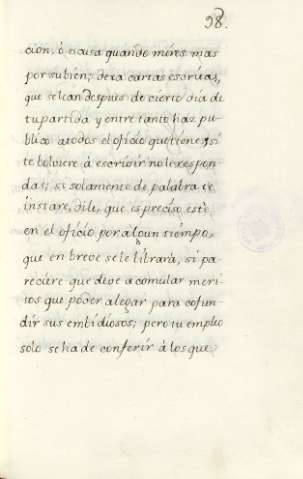 98.
cion, ó causa quando mires mas
por subien; dexa cartas escritas,
que selean despues de cierto dia de
tu partida y entre tanto haz pu-
blico atodos el oficio que tiene, y si
te bolviere á escrivir no le respon-
das; si solamente de palabra te
instare, dile, que es preciso esté
en el oficio por algun tiempo,
que en breve se le librará, si pa-
reciere que deve acomular meri-
tos que poder alegar para cofun-
dir sus embidiosos; pero tu empleo
solo se ha de conferir á los que